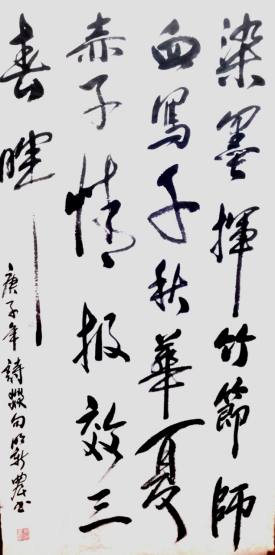 染墨挥竹節師
血寫千秋華夏
赤子情報效三
春暉
庚子年詩燚句明新農书